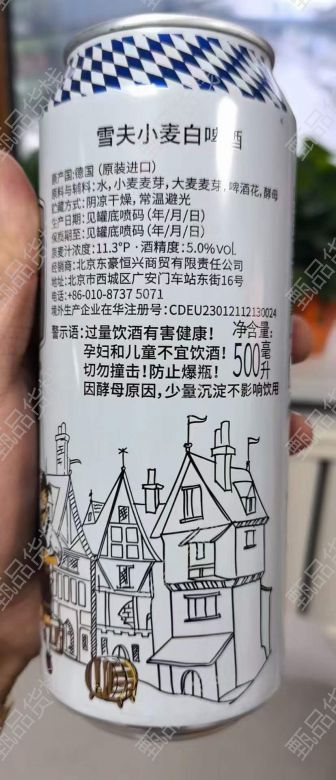 雪夫小麦白啤酒
原产国:德国 (原装进口)
原料与辅料:水,小麦麦芽,大麦麦芽,啤酒花,酵母
贮藏方式:阴凉干燥,常温避光
生产日期:见罐底喷码(年/月/日)
保质期至:见罐底喷码(年/月/日)
原麦汁浓度:11.3°P·酒精度:5.0%vol
经销商:北京东豪恒兴商贸有限责任公司
地址:北京市西城区广安门车站东街16号
电话:+86-010-8737 5071
境外生产企业在华注册号:CDEU23012112130024
警示语:过量饮酒有害健康!
孕妇和儿童不宜饮酒!
切勿撞击!防止爆瓶!
因酵母原因,少量沉淀不影响饮用
净含量:
500毫升
甄品货栈